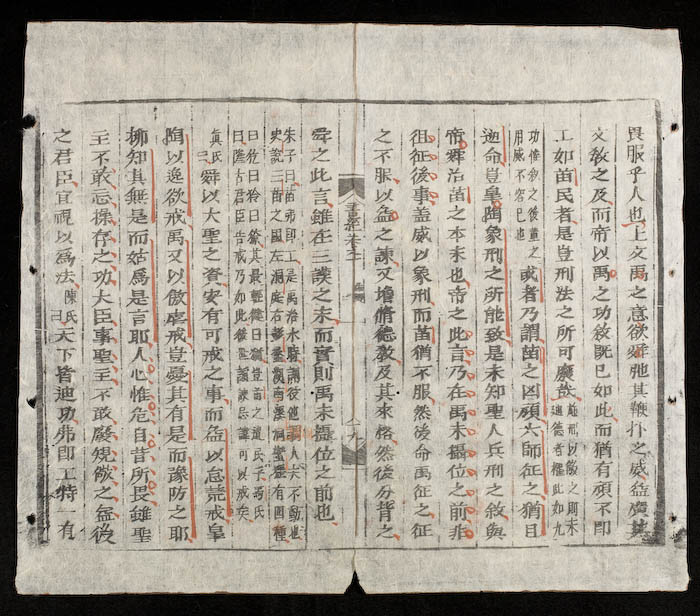 畏服乎人也上文禹之意欲舜弛其鞭扑之威益廣其
文教之及而帝以禹之功敘既已如此而猶有頑不即
工如苗民者是豈刑法之所可廢哉
功惟敘之後董之
用威不容已也
或者乃謂苗之凶頑六師征之猶且
逆命豈皐陶象刑之所能致是未知聖人兵刑之敘與
帝舜治苗之本末也帝之此言乃在禹未攝位之前非
徂征後事盖威以象刑而苗猶不服然後命禹征之征
之不服以益之諫又增脩德教及其來格然後分背之
書經卷之二
舜之此言雖在三謨之末而實則禹未攝位之前也
朱子曰苗弗即工是禹治水時
史說三苗之國左洞庭右彭蠡
真氏曰
舜以大聖之資安有可戒之事而益以怠荒戒皐
陶以逸欲戒禹又以傲虐戒豈憂其有是而豫防之耶
抑知其無是而姑為是言耶人心惟危自昔所畏雖聖
主不敢忘操存之功大臣事聖主不敢廢規儆之益後
之君臣宜視以為法
陳氏曰
天下皆迪功弗即工特一有